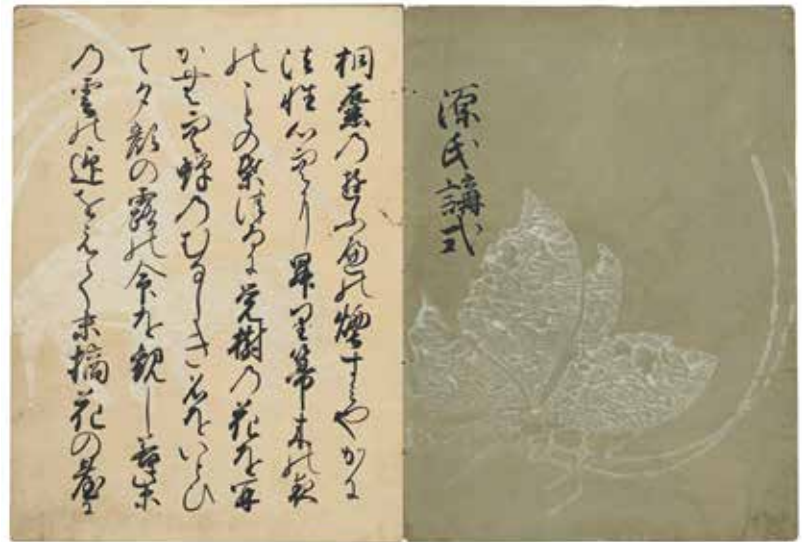 源氏講式
桐壺のゆふへの煙すみやかに
法性の空にのほり帚木の夜
のことの葉つゐに覚樹の花を開
かむ空蝉のむなしき世をいとひ
て夕顔の露の命を観し若紫
の雲の迎をえて末摘花の台に